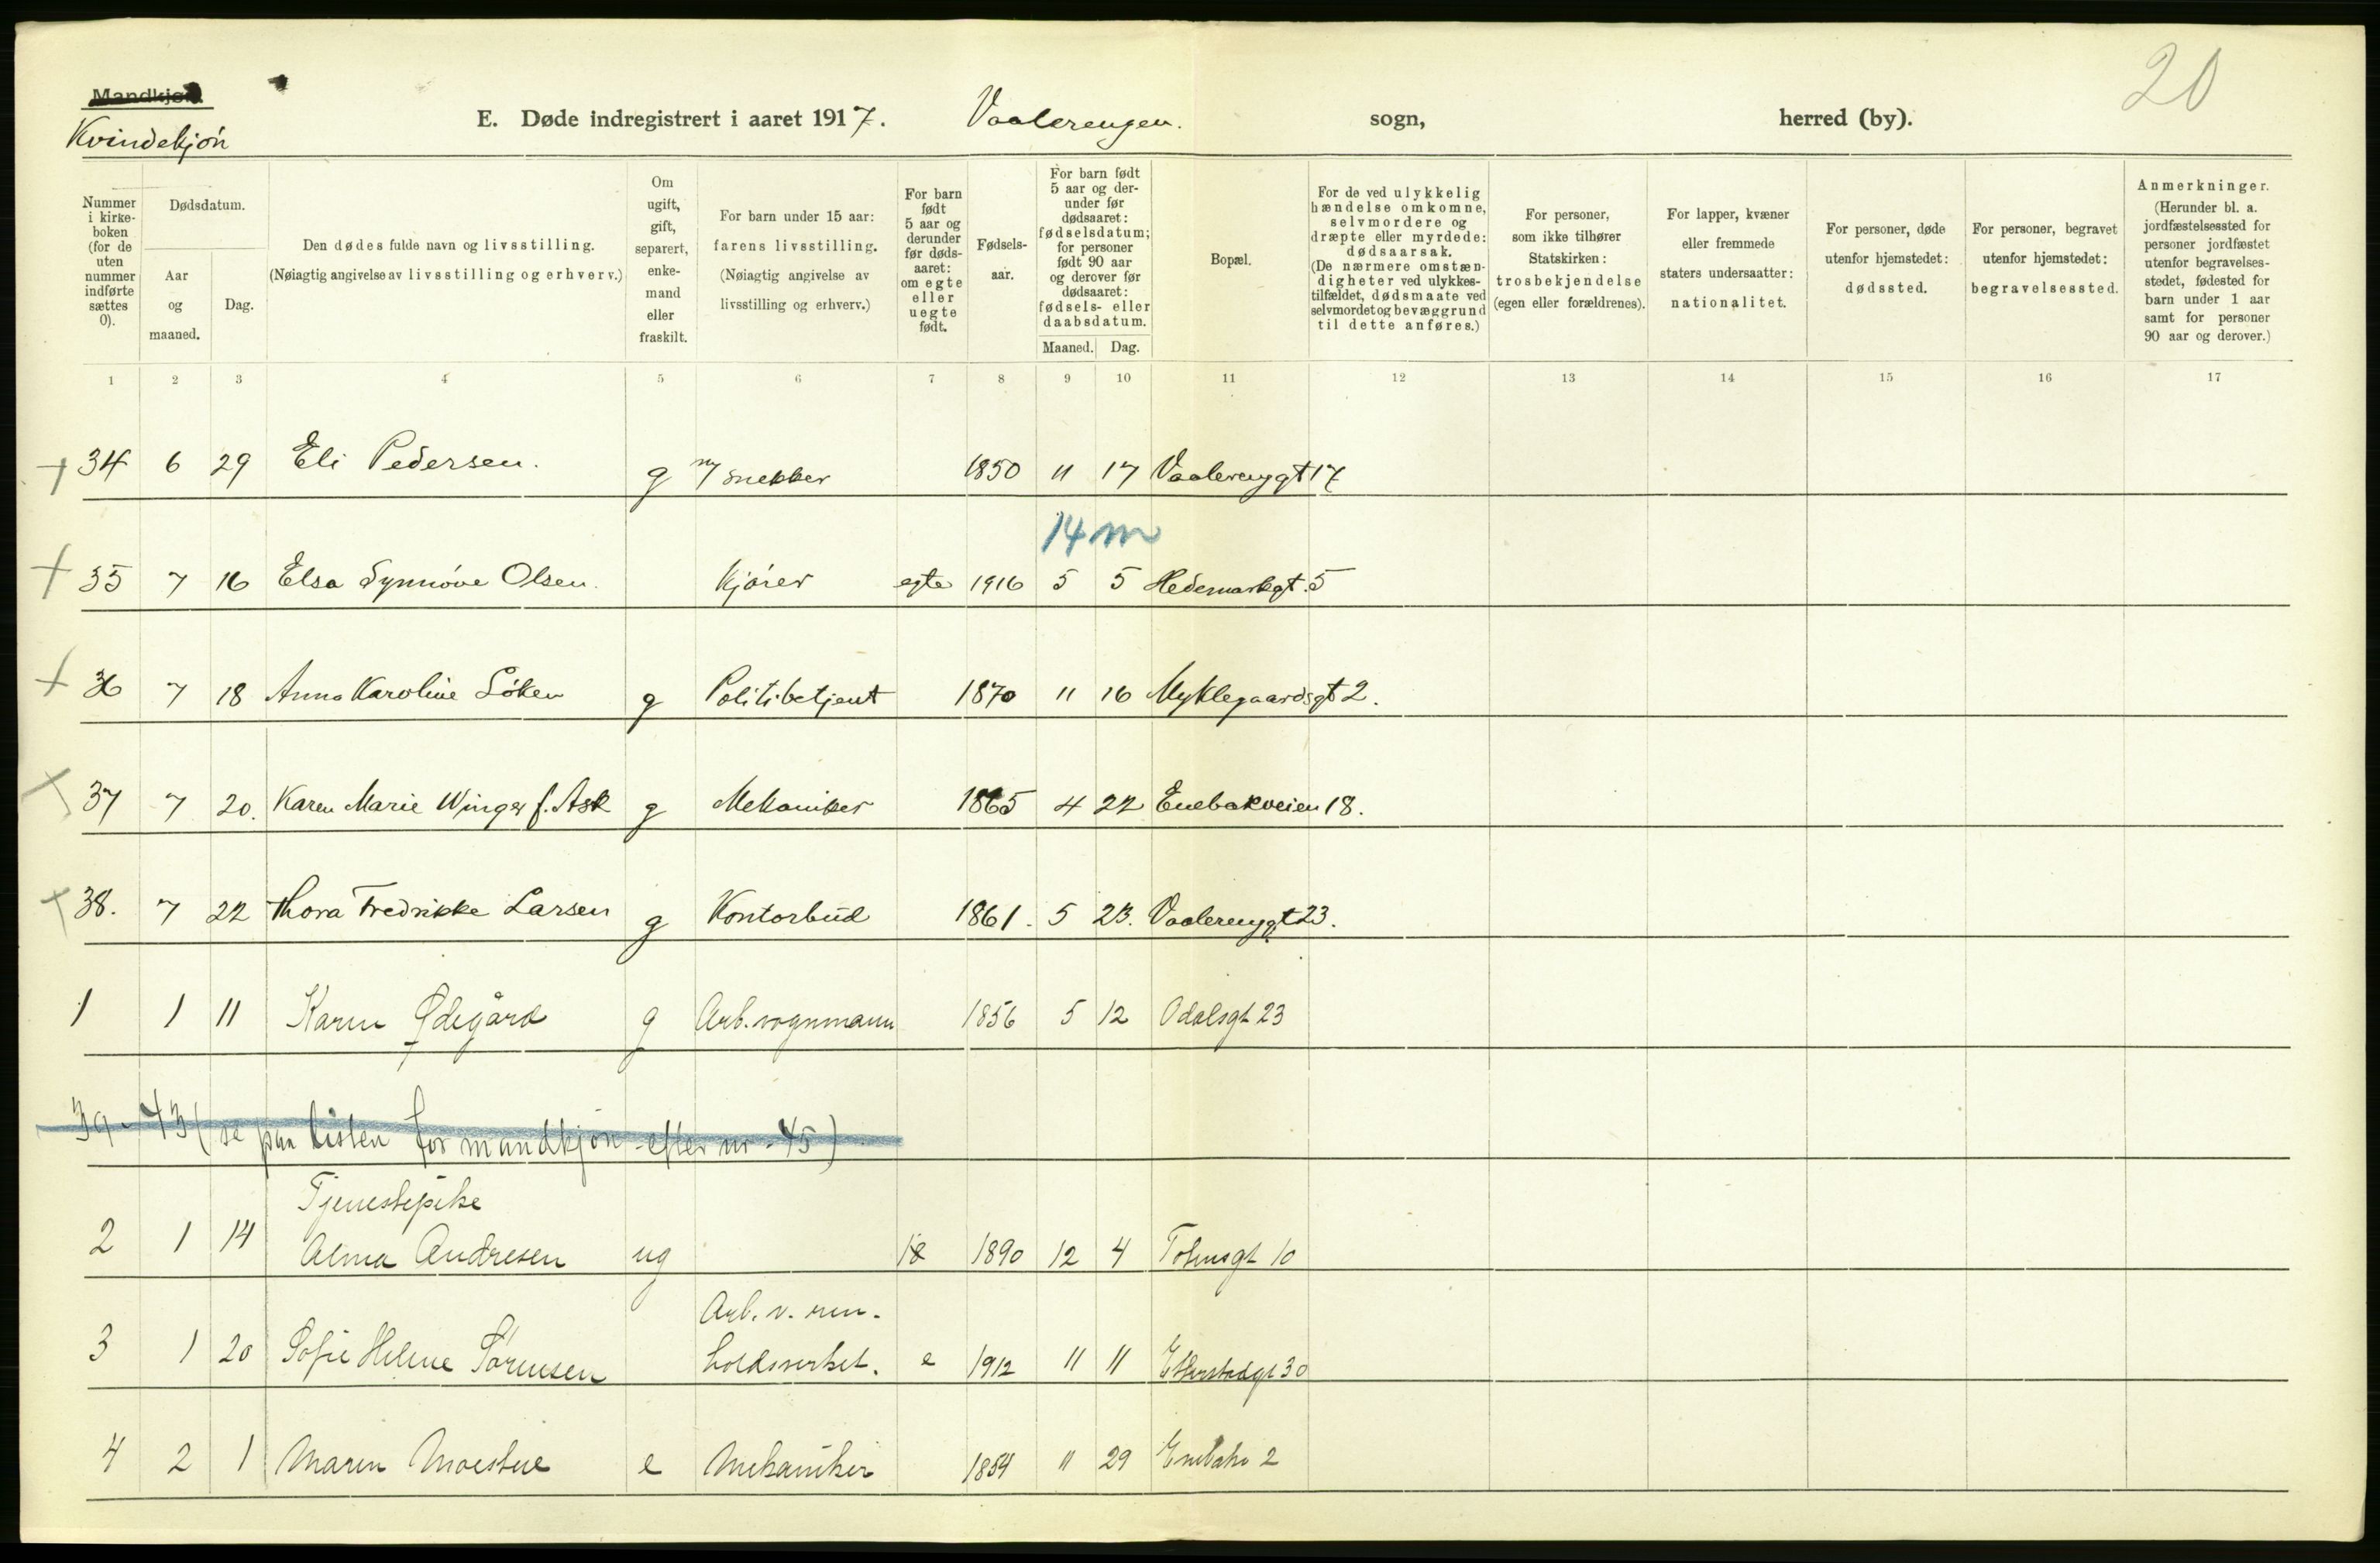 20
Mandkjøn.
Kvindekjön
E. Døde indregistrert i aaret 1917. Vaalerengen. sogn, herred (by).
Nummer i kirke-boken (for de uten nummer indførte sættes 0).
Dødsdatum.
Aar og maaned.
Dag.
Den dødes fulde navn og livsstilling.
(Nøiagtig angivelse av livsstilling og erhverv.)
Om ugift, gift, separert, enke-mand eller fraskilt.
For barn under 15 aar: farens livsstilling. (Nøiagtig angivelse av livsstilling og erhverv.)
For barn født 5 aar og derunder før døds-aaret: om egte eller uegte født.
Fødsels-aar.
For barn født 5 aar og der-under før dødsaaret: fødselsdatum; for personer født 90 aar og derover før dødsaaret: fødsels- eller daabsdatum.
Maaned. Dag.
Bopæl.
For de ved ulykkelig hændelse omkomne, selvmordere og dræpte eller myrdede: dødsaarsak. (De nærmere omstæn-digheter ved ulykkes-tilfældet, dødsmaate ved selvmordet og bevæggrund til dette anføres.)
For personer, som ikke tilhører Statskirken: trosbekjendelse (egen eller forældrenes).
For lapper, kvæner eller fremmede staters undersaatter: nationalitet.
For personer, døde utenfor hjemstedet: dødssted.
For personer, begravet utenfor hjemstedet: begravelsessted.
Anmerkninger. (Herunder bl. a. jordfæstelsessted for personer jordfæstet utenfor begravelses-stedet, fødested for barn under 1 aar samt for personer 90 aar og derover.)
1 2 3 4 5 6 7 8 9 10 11 12 13 14 15 16 17
+ 34 6 29 Eli Pedersen. g snekker 1850 11 17 Vaalerenggt 17
14 m
+ 35 7 16 Elsa Synnöve Olsen. Kjörer egte 1916 5 5 Hedemarkgt. 5
+ 36 7 18 Anna Karoline Löken g Politibetjent 1870 11 16 Myklegaardsgt 2.
+ 37 7 20. Karen Marie Winger f. Ask g Mekaniker 1865 4 22 Enebakveien 18.
+ 38. 7 22 Thora Fredrikke Larsen g Kontorbud 1861. 5 23. Vaalerenggt 23.
1 1 11 Karen Ødegård g Arb. vognmann 1856 5 12 Odalsgt 23
39 - 43 (se paa listen for mandkjön efter nr - 45)
Tjenestepike
2 1 14 Alma Andresen ug 1890 12 4 Totensgt 10
Arb. v. ren-
3 1 20 Sofie Helene Sörensen holdsverket. e 1912 11 11 Etterstadgt 30
4 2 1 Maren Moestue e Mekaniker 1854 11 29 Enebakv 2